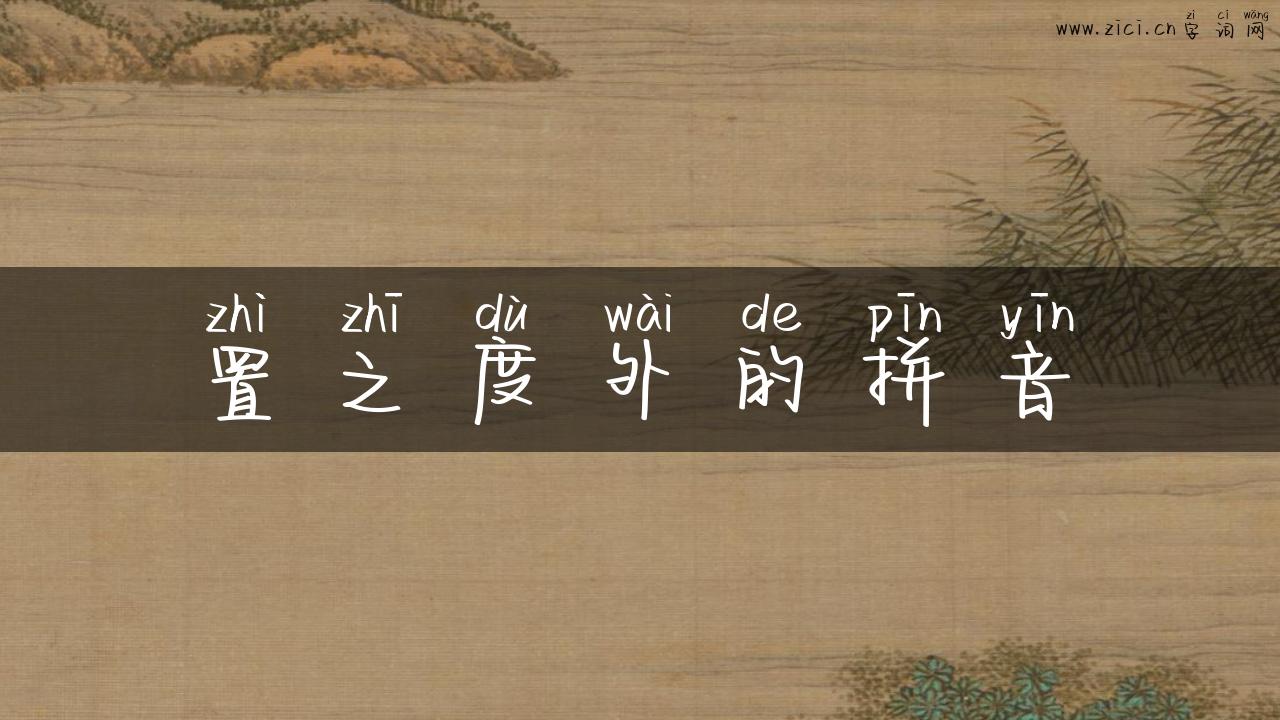 zì cí wǎng
www.zici.cn 字词网
zhì zhī dù wài de pīn yīn
置之度外的拼音